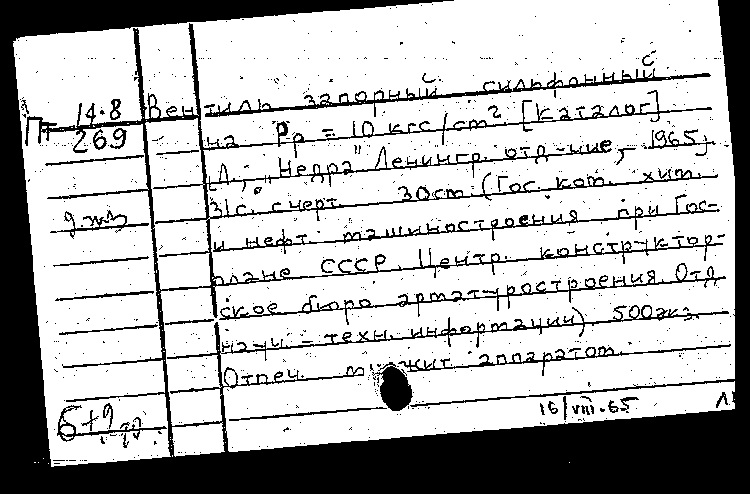 Вентиль запорный сильфонный
Пт 14.8
269
на Рр = 10 кгс/cm² [Каталог]
[Л., „Недра" Ленингр. отд-ние, 1965]
31с. с черт. 30см. (Гос. ком. хим.
и нефт. машиностроения при Гос-
плане СССР. Центр. конструктор-
ское бюро арматуростроения. Отд
научн.-техн. информации). 500экз.
Отпеч. множит. аппаратом.
16/VIII.65